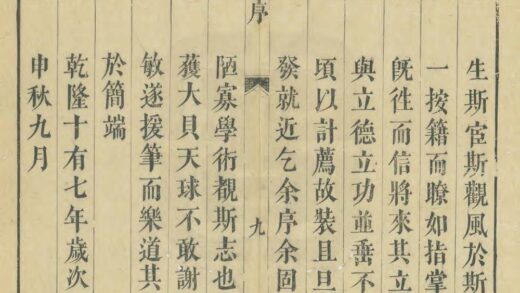 生斯宦斯觀風於斯
一按籍而瞭如指掌
旣徃而信將來其立
與立德立功並垂不
頃以計薦故裝且旦
發就近乞余序余固
序
九
陋寡學術覩斯志也
獲大貝天球不敢謝
敏遂援筆而樂道其
於簡端
乾隆十有七年歲次
申秋九月